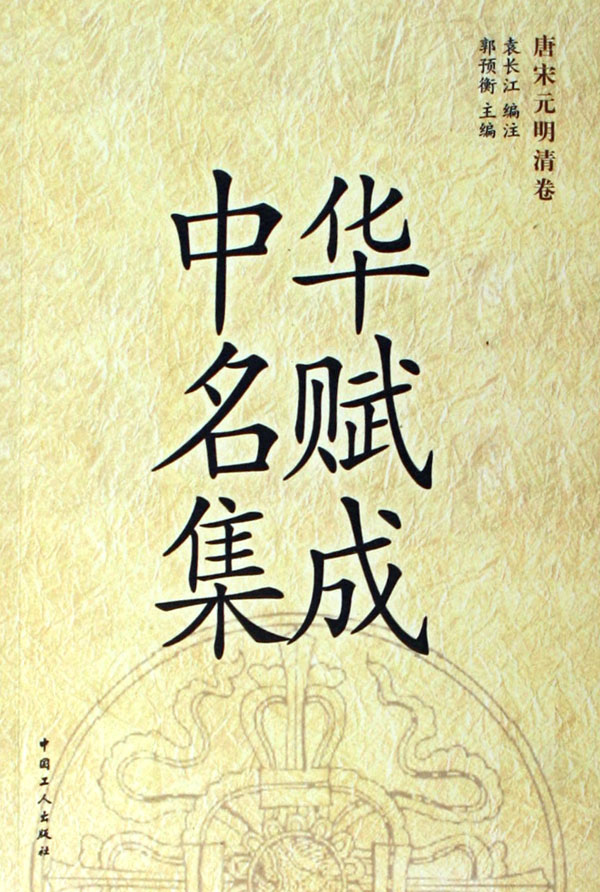 唐宋元明清卷
袁长江 编注
郭预衡 主编
中华
名赋
集成
中国工人出版社